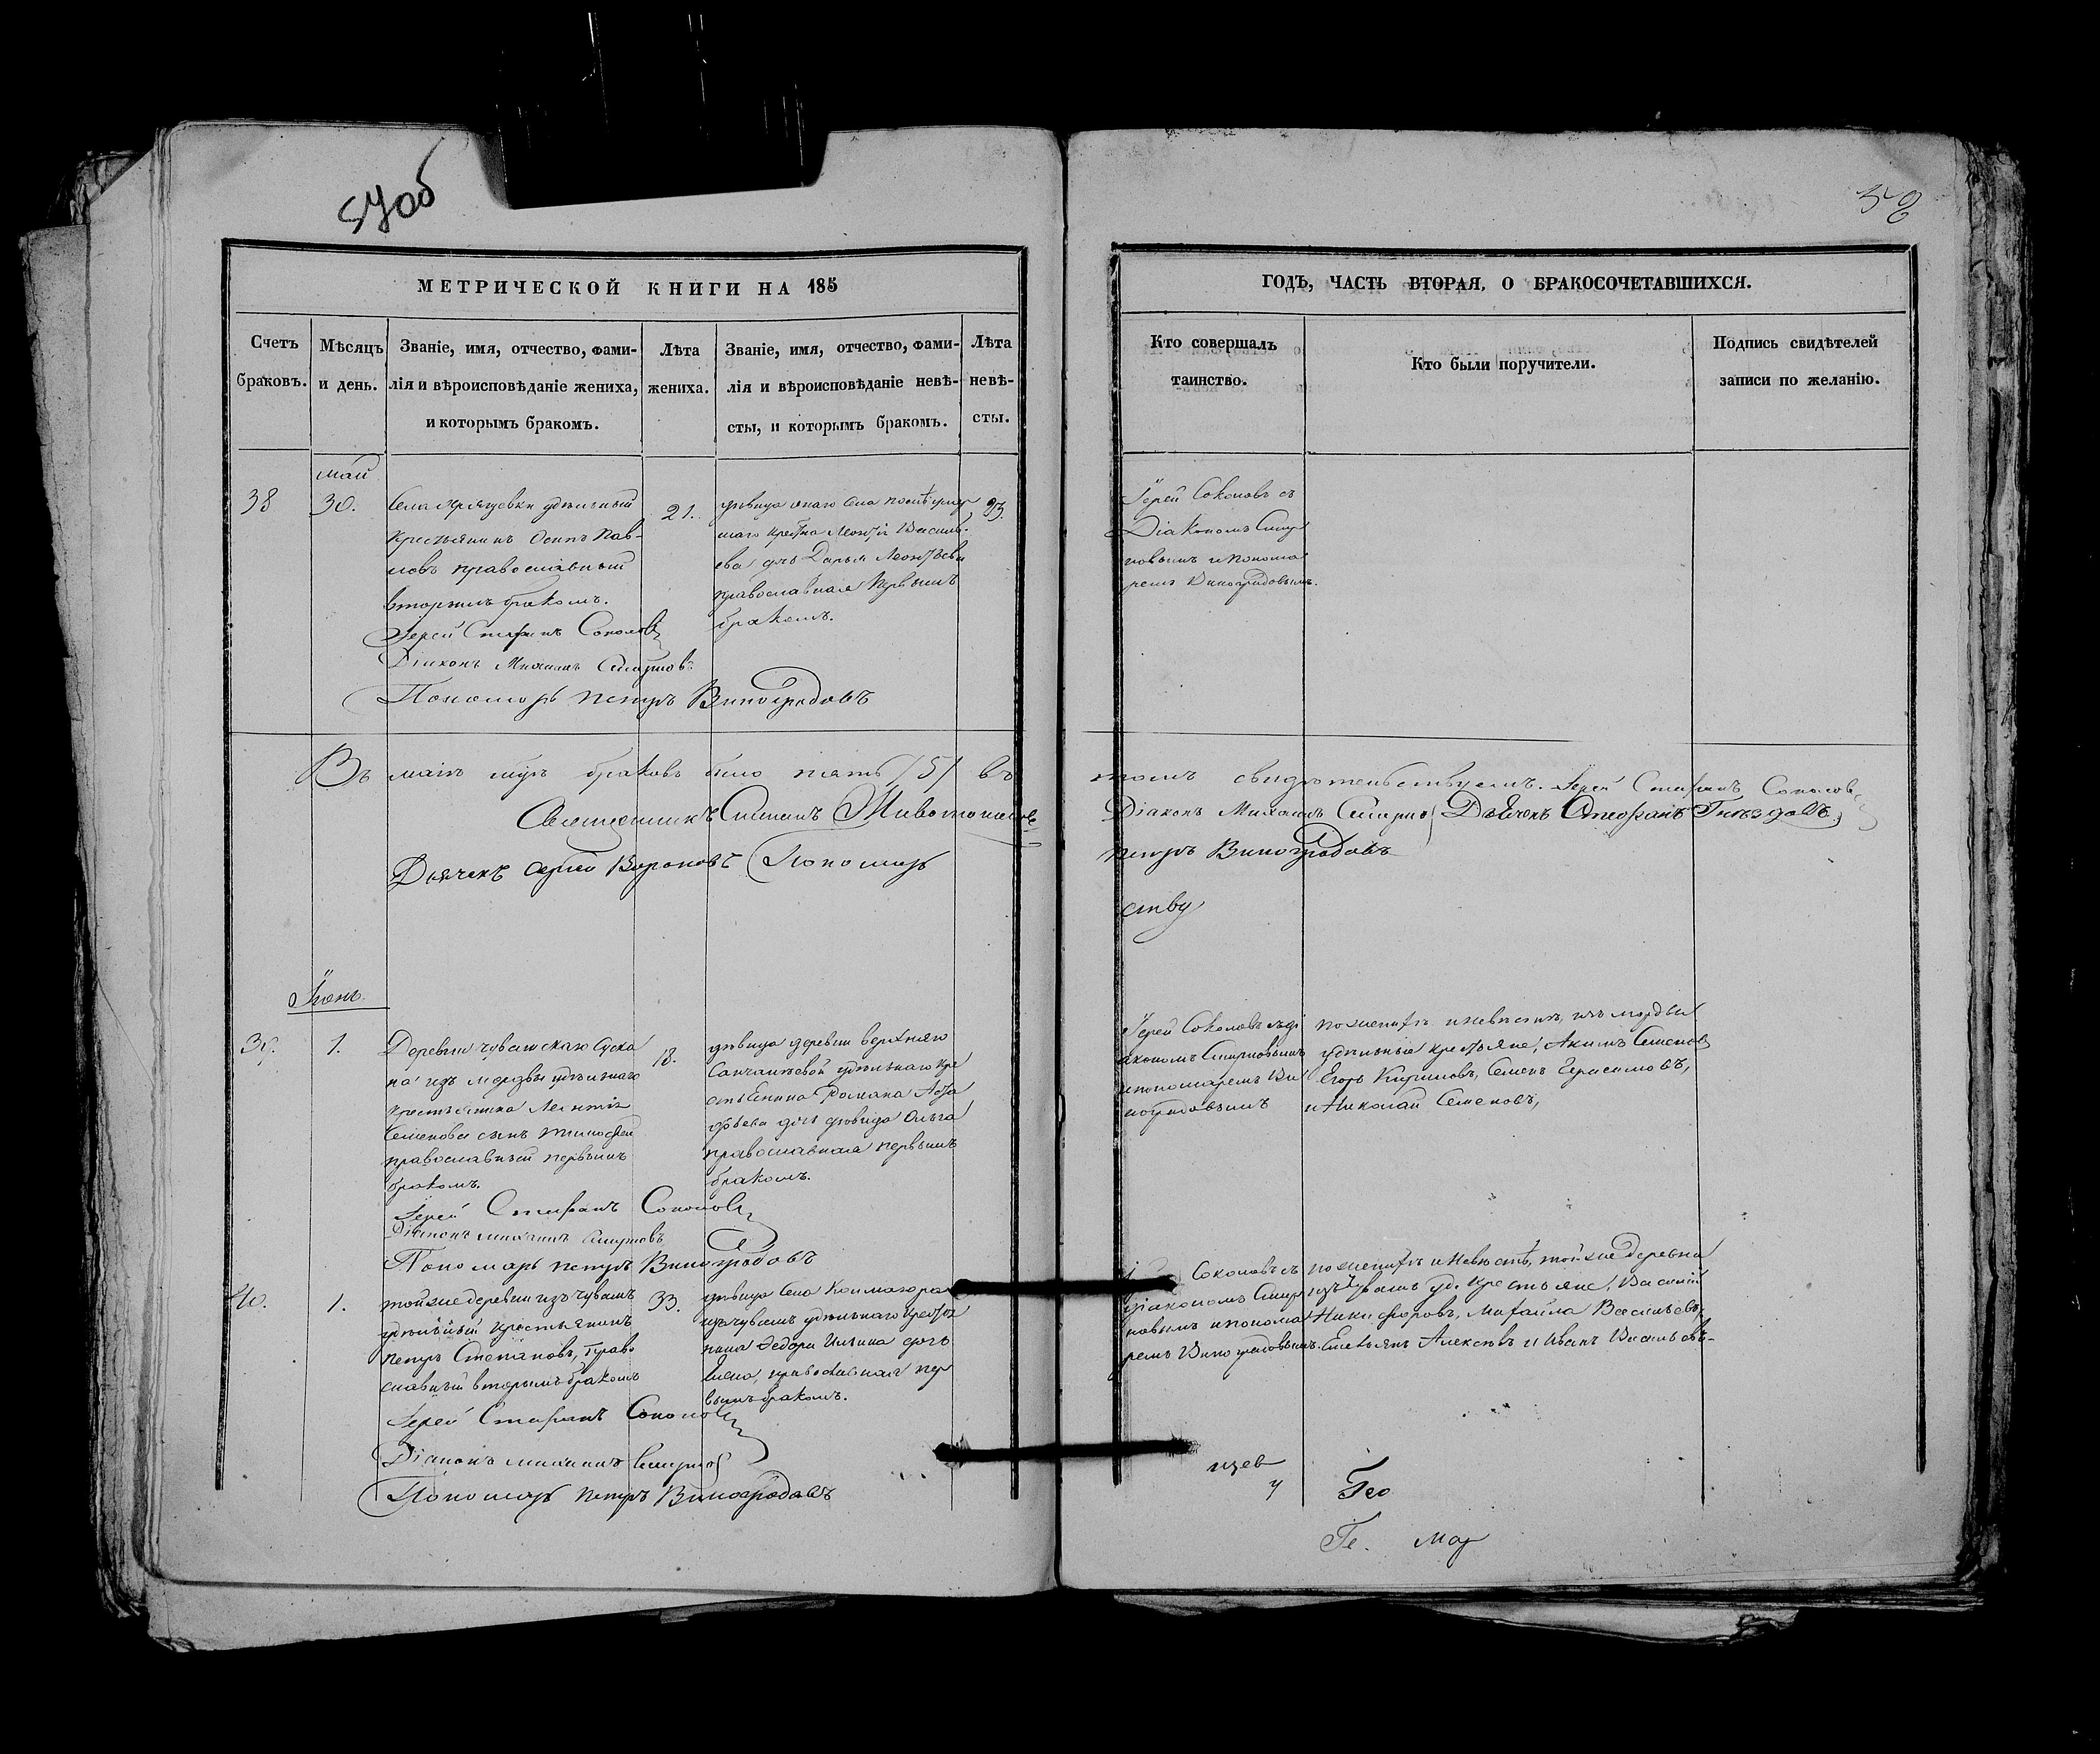 57об
58
МЕТРИЧЕСКОЙ КНИГИ НА 185
ГОДЪ, ЧАСТЬ ВТОРАЯ, О БРАКОСОЧЕТАВШИХСЯ.
Счетъ
браковъ.
Мѣсяцъ
и день.
Званіе, имя, отчество, фами-
лія и вѣроисповѣданіе жениха,
и которымъ бракомъ.
Лѣта
жениха.
Званіе, имя, отчество, фами-
лія и вѣроисповѣданіе невѣ-
сты, и которымъ бракомъ.
Лѣта
невѣ-
сты.
Кто совершалъ
таинство.
Кто были поручители.
Подпись свидѣтелей
записи по желанію.
май
38
30.
Села удѣльный
крестьянинъ Осипъ Пав-
ловъ православный
вторымъ бракомъ.
Іерей Стефанъ Соколовъ
Діаконъ Михаилъ Смирновъ
Пономарь Петръ Виноградовъ
21.
дѣвица онаго села
Леонтія Василь-
ева дчь Дарья Леонтьева
православная первымъ
бракомъ.
23.
Іерей Соколовъ съ
Діакономъ Смир
новымъ и понома
ремъ Виноградовымъ.
Въ маіѣ мцѣ браковъ было пять /5/ въ
томъ свидѣтельствуемъ. Іерей Стефанъ Соколовъ
Священникъ Животовъ
Діаконъ Михаилъ Смирновъ Дьячекъ Стефанъ Гнѣздовъ
Дьячекъ Сергей Вороновъ Пономарь
Петръ Виноградовъ
ству
Іюнь
39.
1.
Деревни чувашскаго Суска
на изъ мордвы удѣльнаго
крестьянина Леонтія
Семенова сынъ Тимофей
православный первымъ
бракомъ.
Іерей Стефанъ Соколовъ
Діаконъ Михаилъ Смирновъ
Пономарь Петръ Виноградовъ
18.
дѣвица деревни верхняго
Санчалѣевой удѣльнаго кре
стьянина Романа
дѣвица Ольга
православная первымъ
бракомъ.
Іерей Соколовъ съ ді
акономъ Смирновымъ
и пономаремъ Ви
ноградовымъ
по женихѣ и невѣстѣ, изъ мордвы
удѣльные крестьяне, Акимъ Семеновъ
Егоръ Кириловъ, Семенъ Герасимовъ,
и Николай Семеновъ,
40.
1.
той же деревни изъ чувашъ
удѣльный крестьянинъ
Петръ Степановъ, право
славный вторымъ бракомъ
Іерей Стефанъ Соколовъ
Діаконъ Михаилъ Смирновъ
Пономарь Петръ Виноградовъ
33.
дѣвица села
изъ чувашъ удѣльнаго крестья
нина Федора Ильина дочь
Елена, православная пер
вымъ бракомъ.
Соколовъ съ
діакономъ Смир
новымъ и понома
ремъ Виноградовымъ.
по женихѣ и невѣстѣ, той же деревни
изъ чувашъ уд. крестьяне, Василій
Никифоровъ, Михайла Васильевъ,
Емельянъ Алексѣевъ и Иванъ Васильевъ-
Гео
Ге. мар